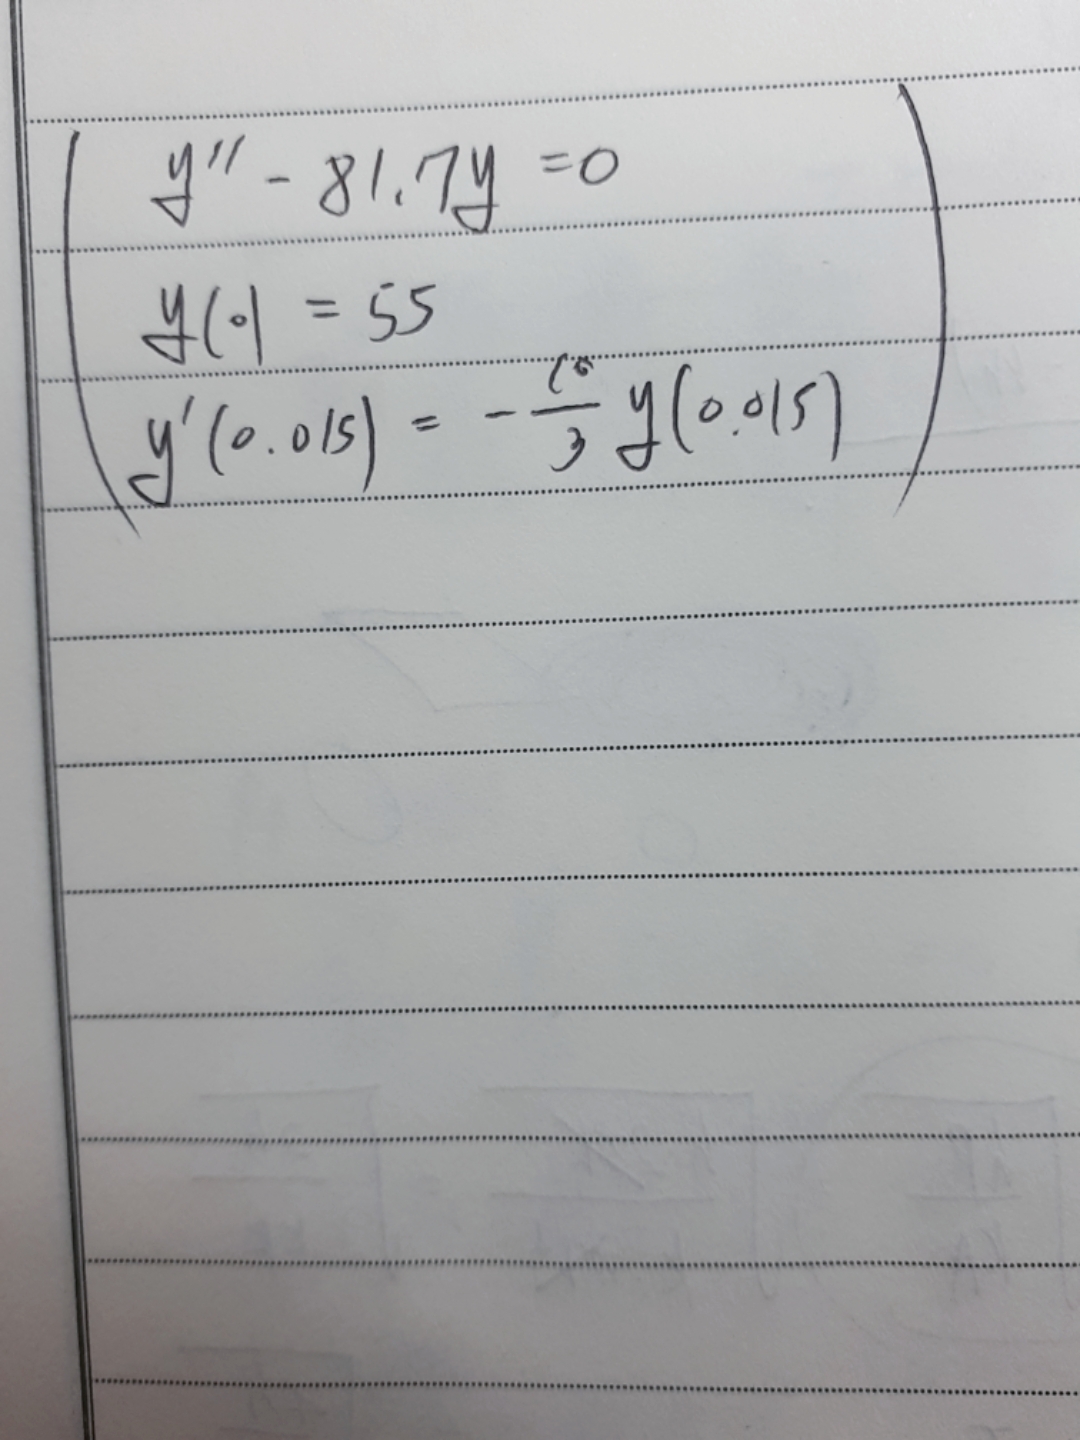 y'' - 81.7y = 0
y(0) = 55
y'(0.015) = -10/3 y(0.015)